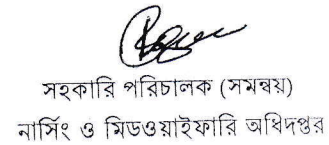 সহকারি পরিচালক (সমন্বয়)
নার্সিং ও মিডওয়াইফারি অধিদপ্তর